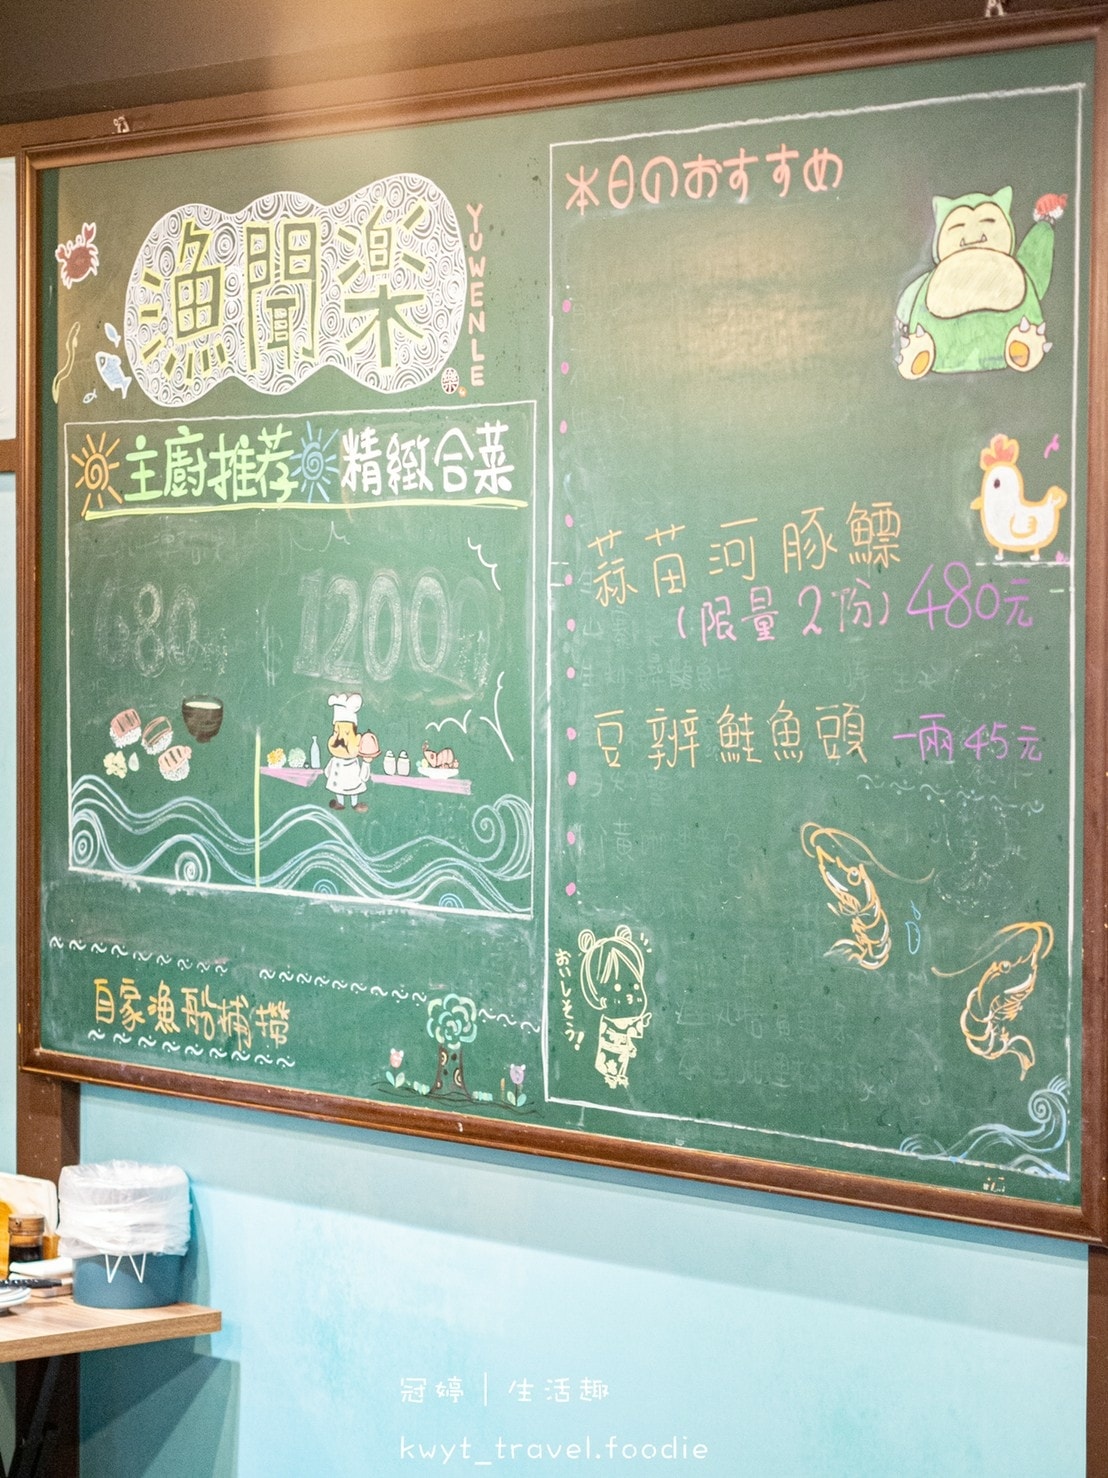 漁聞楽
YUWENLE
主廚推荐 精緻合菜
680
1200
自家漁船捕撈
本日のおすすめ
蒜苗河豚鰾
(限量2份) 480元
豆瓣鮭魚頭 一兩45元
おいしそう!
冠婷｜生活趣
kwyt_travel.foodie